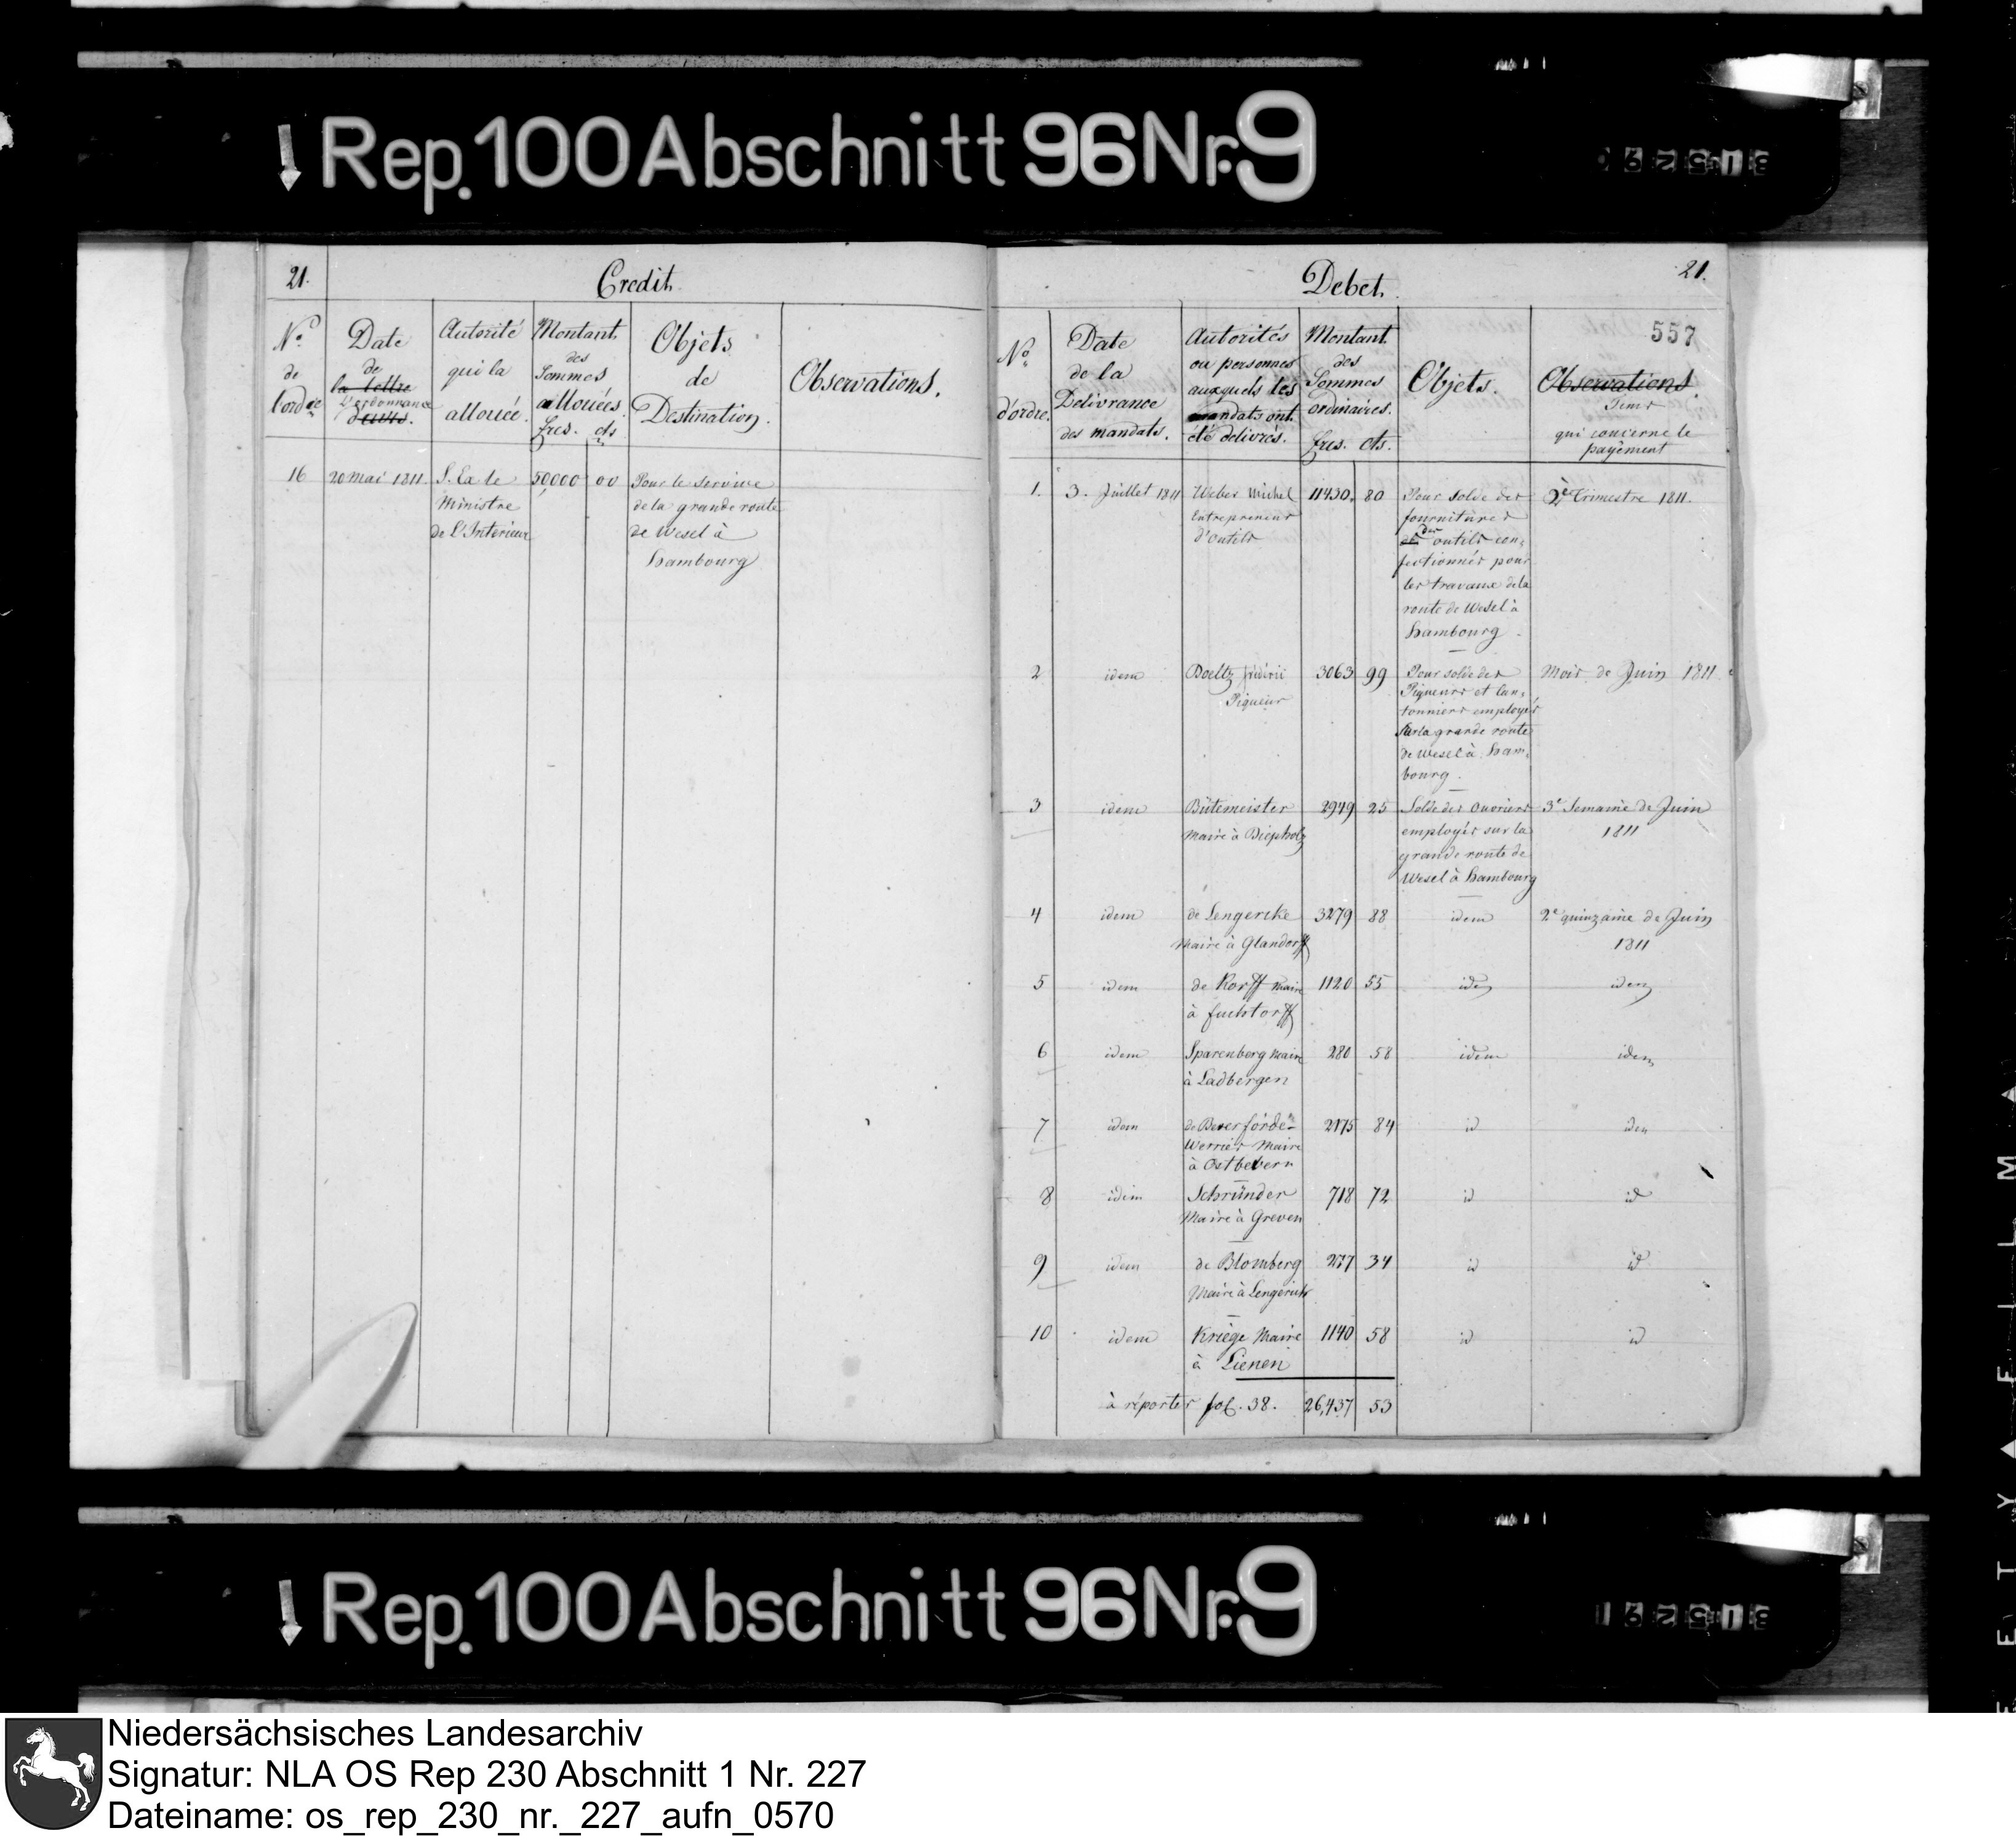 Rep. 100 Abschnitt 96 Nr. 9
21.
Credit
No
de
l'ordre
Date
de
la lettre
L'ordonnance
Autorité
qui la
allouée.
Montant
des
Sommes
allouées.
frcs. cts
Objets
de
Destination.
Observations.
16
20 Mai 1811.
S. Ex le
Ministre
de L'Interieur
50,000 00
Pour le service
de la grande route
de Wesel à
hambourg
Debet.
21.
557
No
d'ordre.
Date
de la
Delivrance
des mandats.
Autorités
ou personnes
auxquels les
mandats ont
été delivrés.
Montant
des
Sommes
ordinaires.
frcs. cts.
Objets.
Observations
Tems
qui concerne le
payement
1.
3. Juillet 1811
Weber Michel
Entrepreneur
d'outils
11430. 80
Pour Solde des
fournitures
des outils con=
fectionnés pour
les travaux de la
route de Wesel à
hambourg.
2e Trimestre 1811.
2
idem
Boeltz fréderic
Piqueur
3063 99
Pour solde des
Piqueurs et can=
tonniers employés
sur la grande route
de Wesel à ham=
bourg.
Mois de Juin 1811.
3
idem
Bütemeister
Maire à Diepholz
2949 25
Solde des ouvriers
employés sur la
grande route de
Wesel à hambourg
3e Semaine de Juin
1811
4
idem
de Lengercke
Maire à Glandorff
3279 88
idem
2e quinzaine de Juin
1811
5
idem
de Korff Maire
à fuchtorff
1120 55
idem
idem
6
idem
Sparenberg Maire
à Ladbergen
280 58
idem
idem
7
idem
de Beverförde-
Werries Maire
à Ostbevern
2175 84
id
idem
8
idem
Schründer
Maire à Greven
718 72
id
id
9
idem
de Blomberg
Maire à Lengerich
277 34
id
id
10
idem
Kriege Maire
à Lienen
1140 58
id
id
à réporter fol. 38. 26,437 53
Rep. 100 Abschnitt 96 Nr. 9
Niedersächsisches Landesarchiv
Signatur: NLA OS Rep 230 Abschnitt 1 Nr. 227
Dateiname: os_rep_230_nr._227_aufn_0570